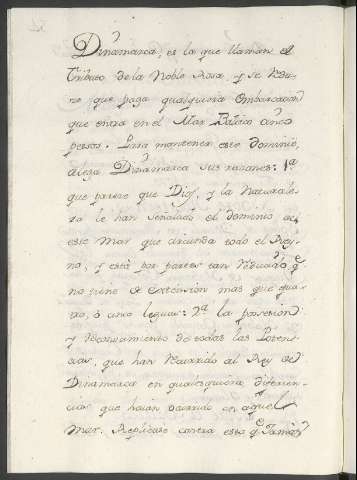 Dinamarca, es la que llaman el
Tributo de la Noble Rosa, y se redu-
ce que paga qualquiera Embarcacion
que entra en el Mar Baltico cinco
pesos. Para mantener este dominio,
alega Dinamarca sus razones: 1ª
que parece que Dios, y la Naturale-
za le han señalado el dominio de
este Mar que circunda todo el Rey-
no, y está por partes tan reducido q.e
no tiene de extension mas que qua-
tro, ó cinco leguas: 2ª la posesion
y reconocimiento de todas las Poten-
cias, que han recurrido al Rey de
Dinamarca en qualesquiera diferen-
cias que hayan ocurrido en aquel
Mar. Replicase contra esto q.e Jamas